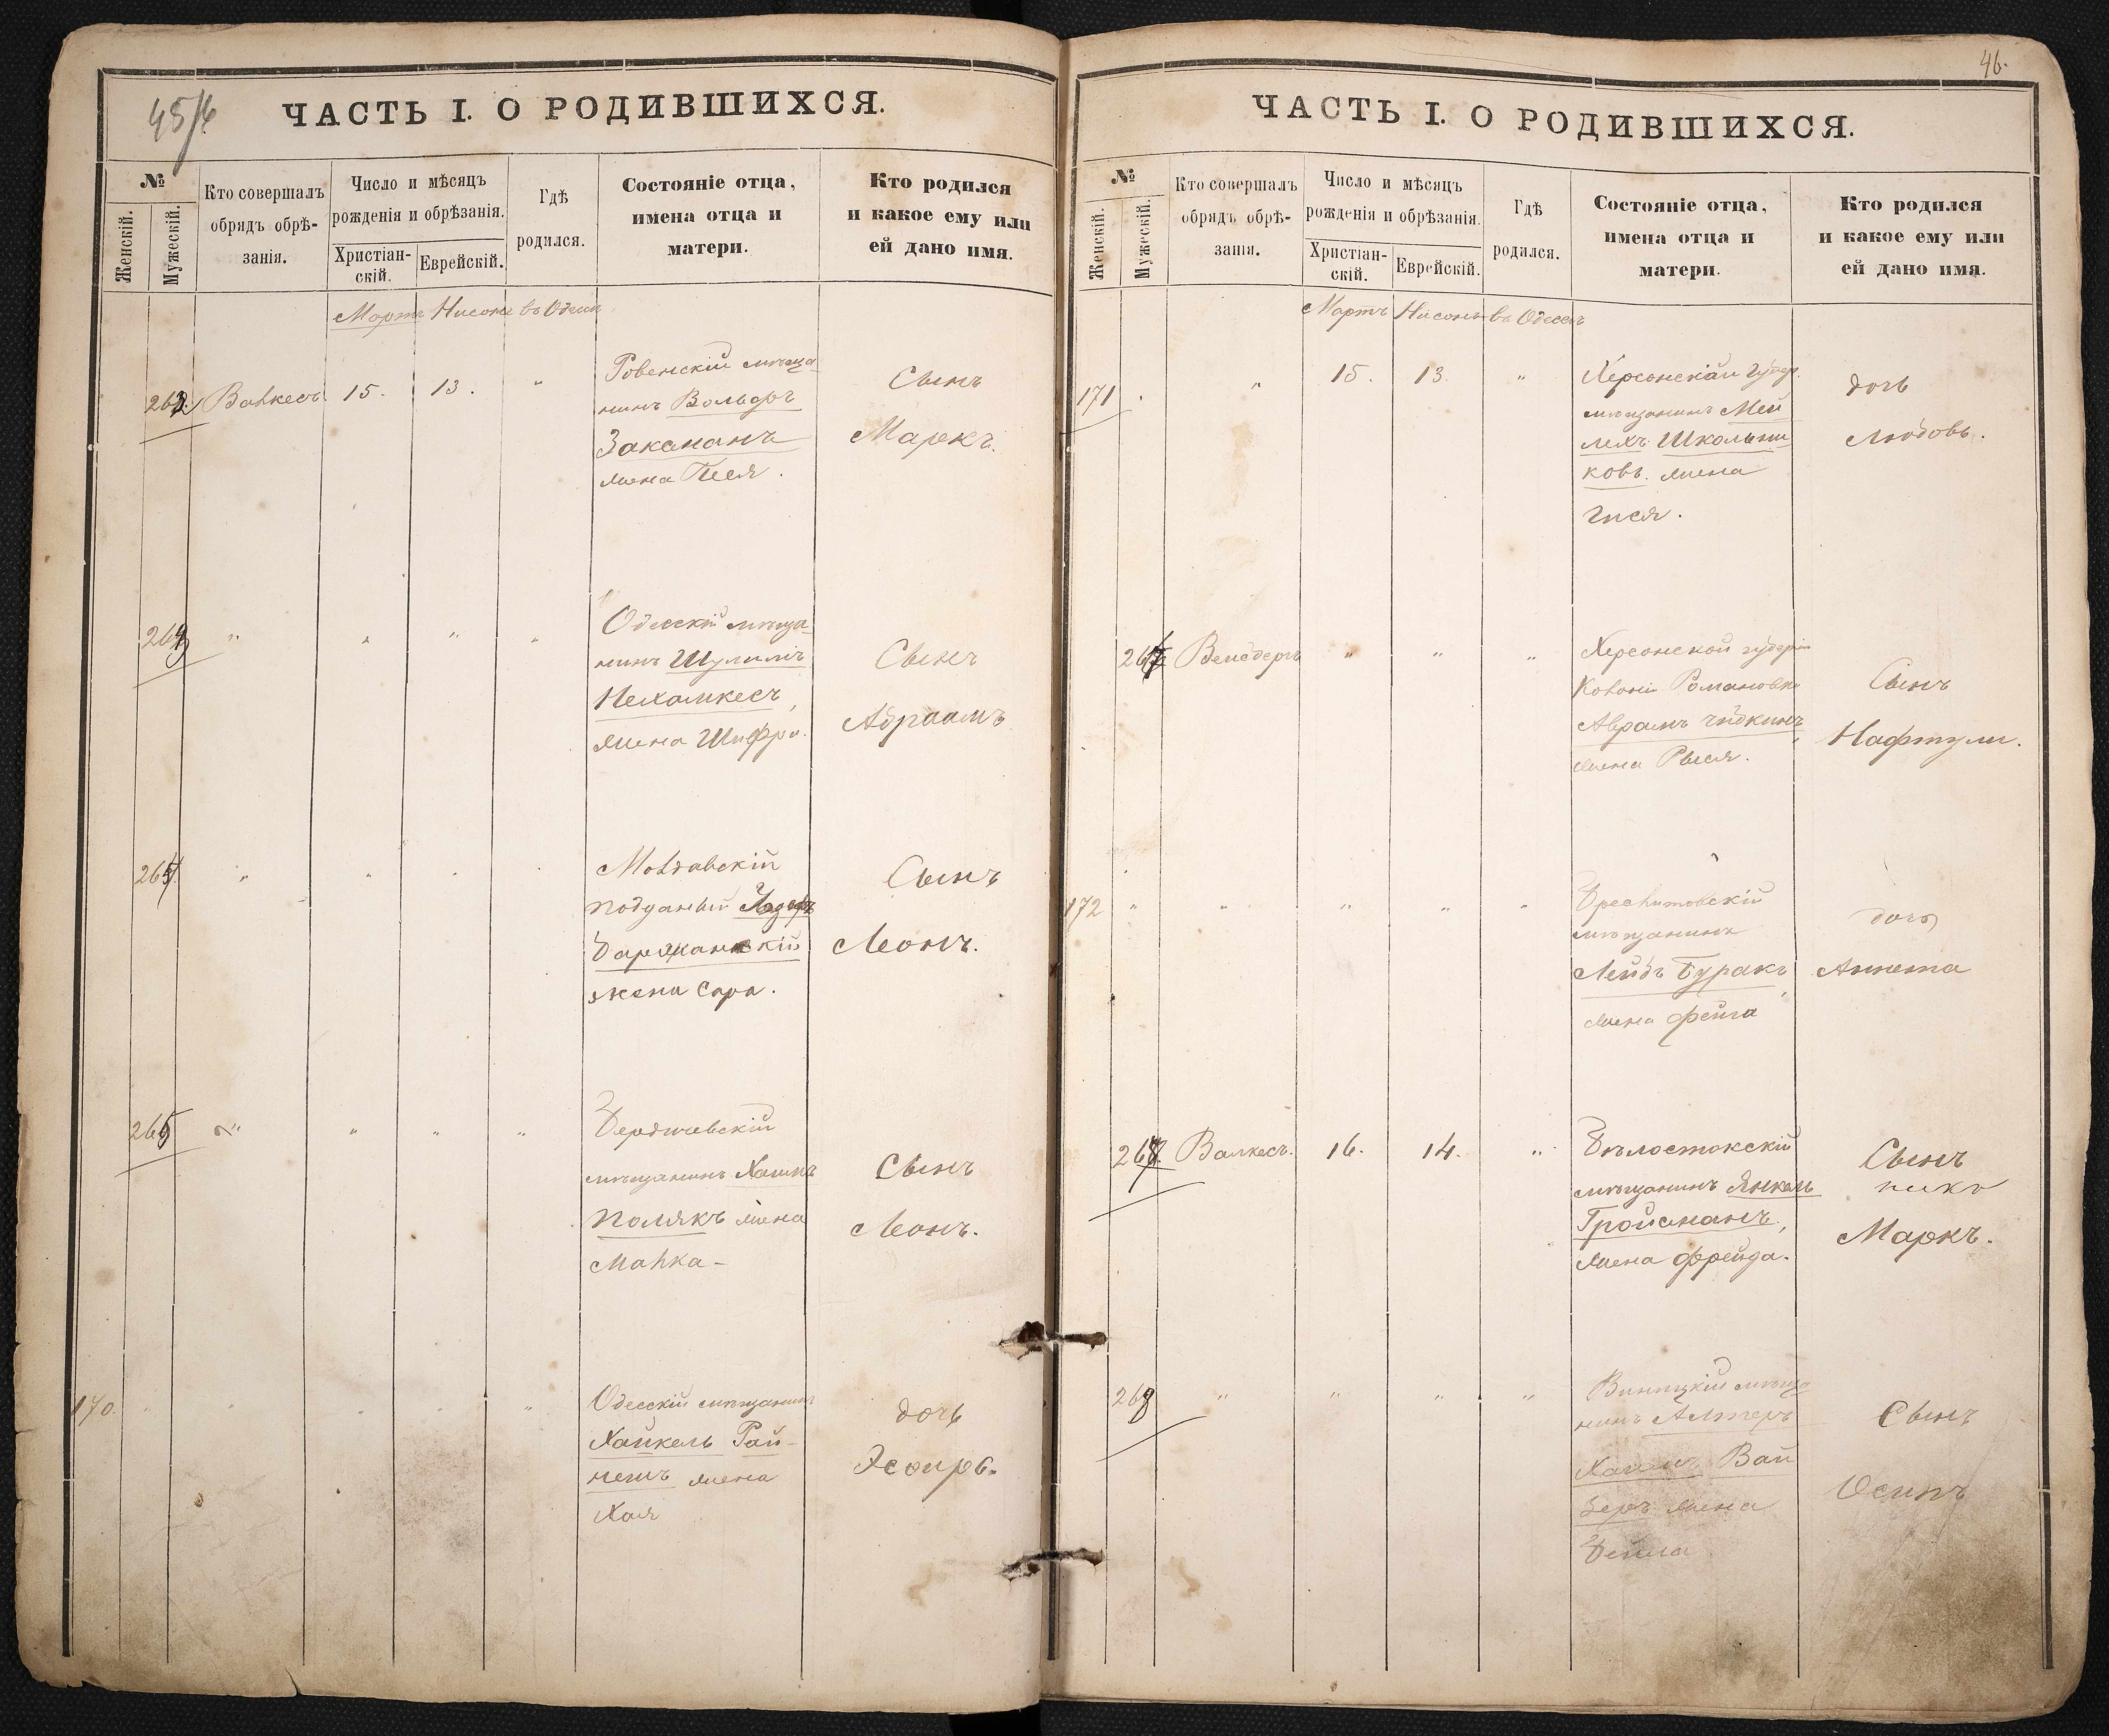 45/6
ЧАСТЬ I. О РОДИВШИХСЯ.
№
Женскій.
Мужескій.
Кто совершалъ
обрядъ обрѣ-
занія.
Число и мѣсяцъ
рожденія и обрѣзанія.
Христіан-
скій.
Еврейскій.
Гдѣ
родился.
Состояніе отца,
имена отца и
матери.
Кто родился
и какое ему или
ей дано имя.
Мартъ Нисонъ въ Одессѣ
263 Валкесъ 15. 13. "
Ровенскій мѣща
нинъ Вольфъ
Закаманъ
жена Песя.
Сынъ
Маркъ.
264 " " " "
Одесскій мѣща
нинъ Шулимъ
Нехамкесъ,
жена Шифра.
Сынъ
Абраамъ
" " "
Молдавскій
подданый
жена Сара.
Сынъ
Леонъ.
265 " " " "
Бердичевскій
мѣщанинъ Хаимъ
Полякъ жена
Малка -
Сынъ
Леонъ.
170. " " " "
Одесскій мѣщанинъ
Хайкель Рай-
жена
Хая
дочь
Эсѳирь.
46.
ЧАСТЬ I. О РОДИВШИХСЯ.
№
Женскій.
Мужескій.
Кто совершалъ
обрядъ обрѣ-
занія.
Число и мѣсяцъ
рожденія и обрѣзанія.
Христіан-
скій.
Еврейскій.
Гдѣ
родился.
Состояніе отца,
имена отца и
матери.
Кто родился
и какое ему или
ей дано имя.
Мартъ Нисонъ въ Одессѣ
171 " 15. 13. "
Херсонской губер.
мѣщанинъ Мей
лехъ Школьни
ковъ. жена
Гися.
дочь
Любовь.
Вейсберъ " " "
Херсонской губерніи
Колоніи Романовки
Аврамъ Чудкинъ,
жена Рыся.
Сынъ
Нафтули.
172 " " " " "
мѣщанинъ
Лейбъ Буракъ,
жена Фейга
дочь
Аннета
Валкесъ. 16. 14. "
Бѣлостокскій
мѣщанинъ Янкель
Гройсманъ,
жена Фрейда.
Сынъ
Маркъ.
268 " " " "
Винницкій мѣща
нинъ Алтеръ
Хаимъ Вай
беръ жена
Бейла
Сынъ
Осипъ